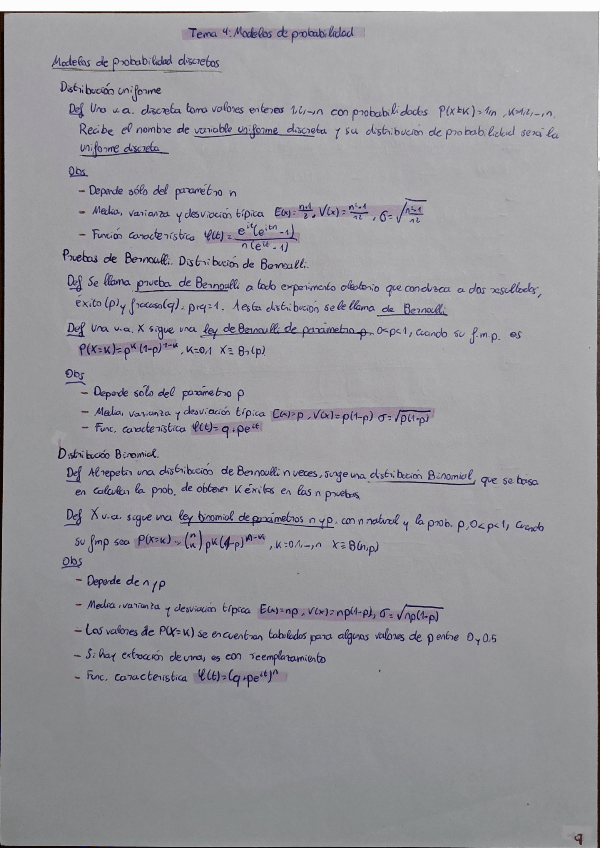 Tema 4: Modelos de probabilidad
Modelos de probabilidad discretos
Distribución uniforme
Def Una v.a. discreta toma valores enteros 1,2,...,n con probabilidades P(X=K)=1/n, K=1,2,...,n.
Recibe el nombre de variable uniforme discreta y su distribución de probabilidad será la
uniforme discreta
Obs
- Depende sólo del parámetro n
- Media, varianza y desviación típica E(x)=n+1/2, V(x)=n²-1/12, σ=√n²-1/12
- Función característica φ(t)=e^it(e^itn-1)/n(e^it-1)
Pruebas de Bernoulli. Distribución de Bernoulli.
Def Se llama prueba de Bernoulli a todo experimento aleatorio que conduzca a dos resultados,
éxito(p) y fracaso(q). p+q=1. A esta distribución se le llama de Bernoulli
Def Una v.a. X sigue una ley de Bernoulli de parámetro p, 0<p<1, cuando su f.m.p. es
P(X=K)=p^K(1-p)^1-K, K=0,1 X≡Br(p)
Obs
- Depende sólo del parámetro p
- Media, varianza y desviación típica E(x)=p, V(x)=p(1-p) σ=√p(1-p)
- Func. característica φ(t)=q+pe^it
Distribución Binomial.
Def Al repetir una distribución de Bernoulli n veces, surge una distribución Binomial, que se basa
en calcular la prob. de obtener K éxitos en las n pruebas.
Def X v.a. sigue una ley binomial de parámetros n y p, con n natural y la prob. p, 0<p<1, cuando
su fmp sea P(X=K)=(n K)p^K(1-p)^n-K, K=0,1,...,n X≡B(n,p)
Obs
- Depende de n y p
- Media, varianza y desviación típica E(x)=np, V(x)=np(1-p), σ=√np(1-p)
- Los valores de P(X=K) se encuentran tabulados para algunos valores de p entre 0 y 0.5
- Si hay extracción de urna, es con reemplazamiento
- Func. característica φ(t)=(q+pe^it)^n
9